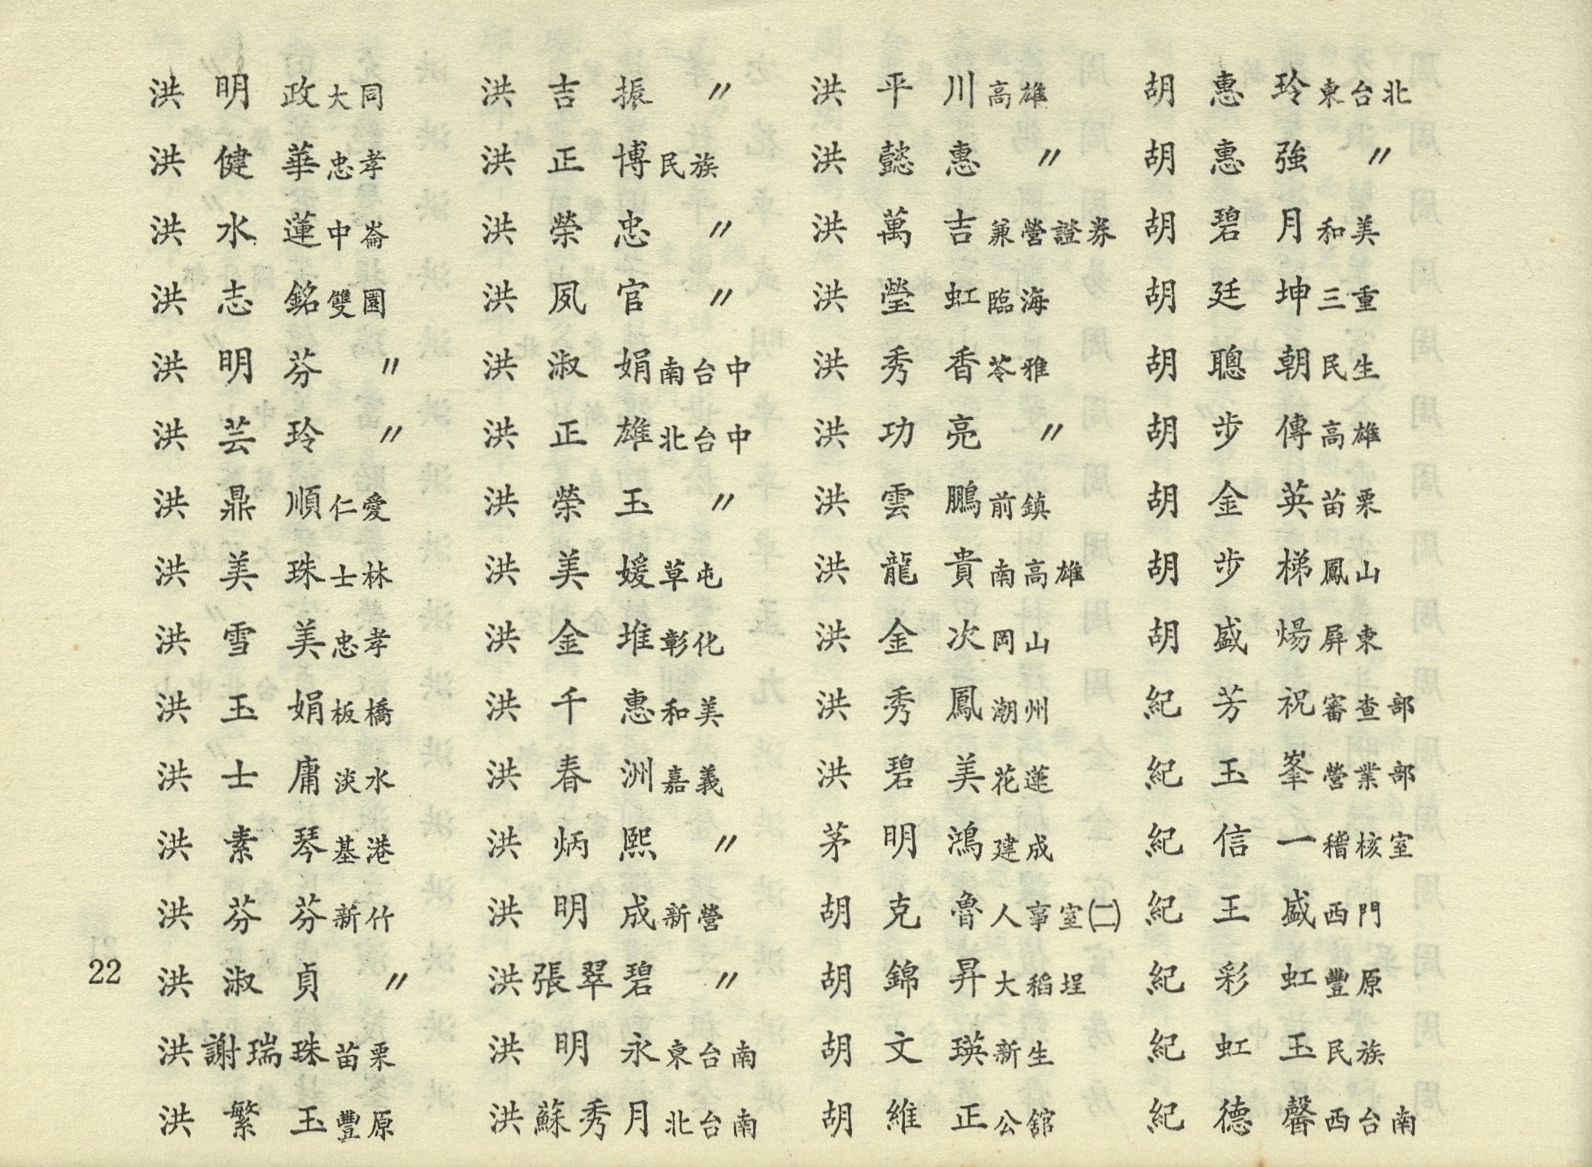 洪明政大同
洪健華忠孝
洪水蓮中崙
洪志銘雙園
洪明芬〃
洪芸玲〃
洪鼎順仁愛
洪美珠士林
洪雪美忠孝
洪玉娟板橋
洪士庸淡水
洪素琴基港
洪芬芬新竹
洪淑貞〃
洪謝瑞珠苗栗
洪繁玉豐原
洪吉振〃
洪正博民族
洪榮忠〃
洪夙官〃
洪淑娟南台中
洪正雄北台中
洪榮玉〃
洪美媛草屯
洪金堆彰化
洪千惠和美
洪春洲嘉義
洪炳熙〃
洪明成新營
洪張翠碧〃
洪明永東台南
洪蘇秀月北台南
洪平川高雄
洪懿惠〃
洪萬吉兼營證券
洪瑩虹臨海
洪秀香苓雅
洪功亮〃
洪雲鵬前鎮
洪龍貴南高雄
洪金次岡山
洪秀鳳潮州
洪碧美花蓮
茅明鴻建成
胡克魯人事室㈡
胡錦昇大稻埕
胡文瑛新生
胡維正公舘
胡惠玲東台北
胡惠強〃
胡碧月和美
胡廷坤三重
胡聰朝民生
胡步傳高雄
胡金英苗栗
胡步梯鳳山
胡盛煬屏東
紀芳祝審查部
紀玉峯營業部
紀信一稽核室
紀王盛西門
紀彩虹豐原
紀虹玉民族
紀德馨西台南
22